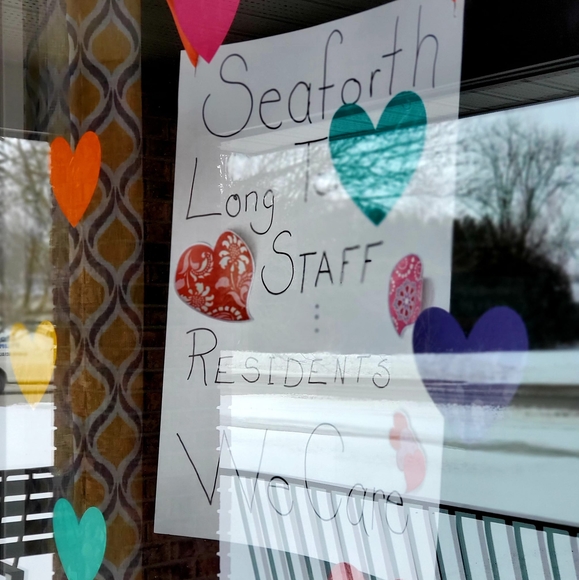 Seaforth
Long T
STAFF
RESIDENTS
We Care